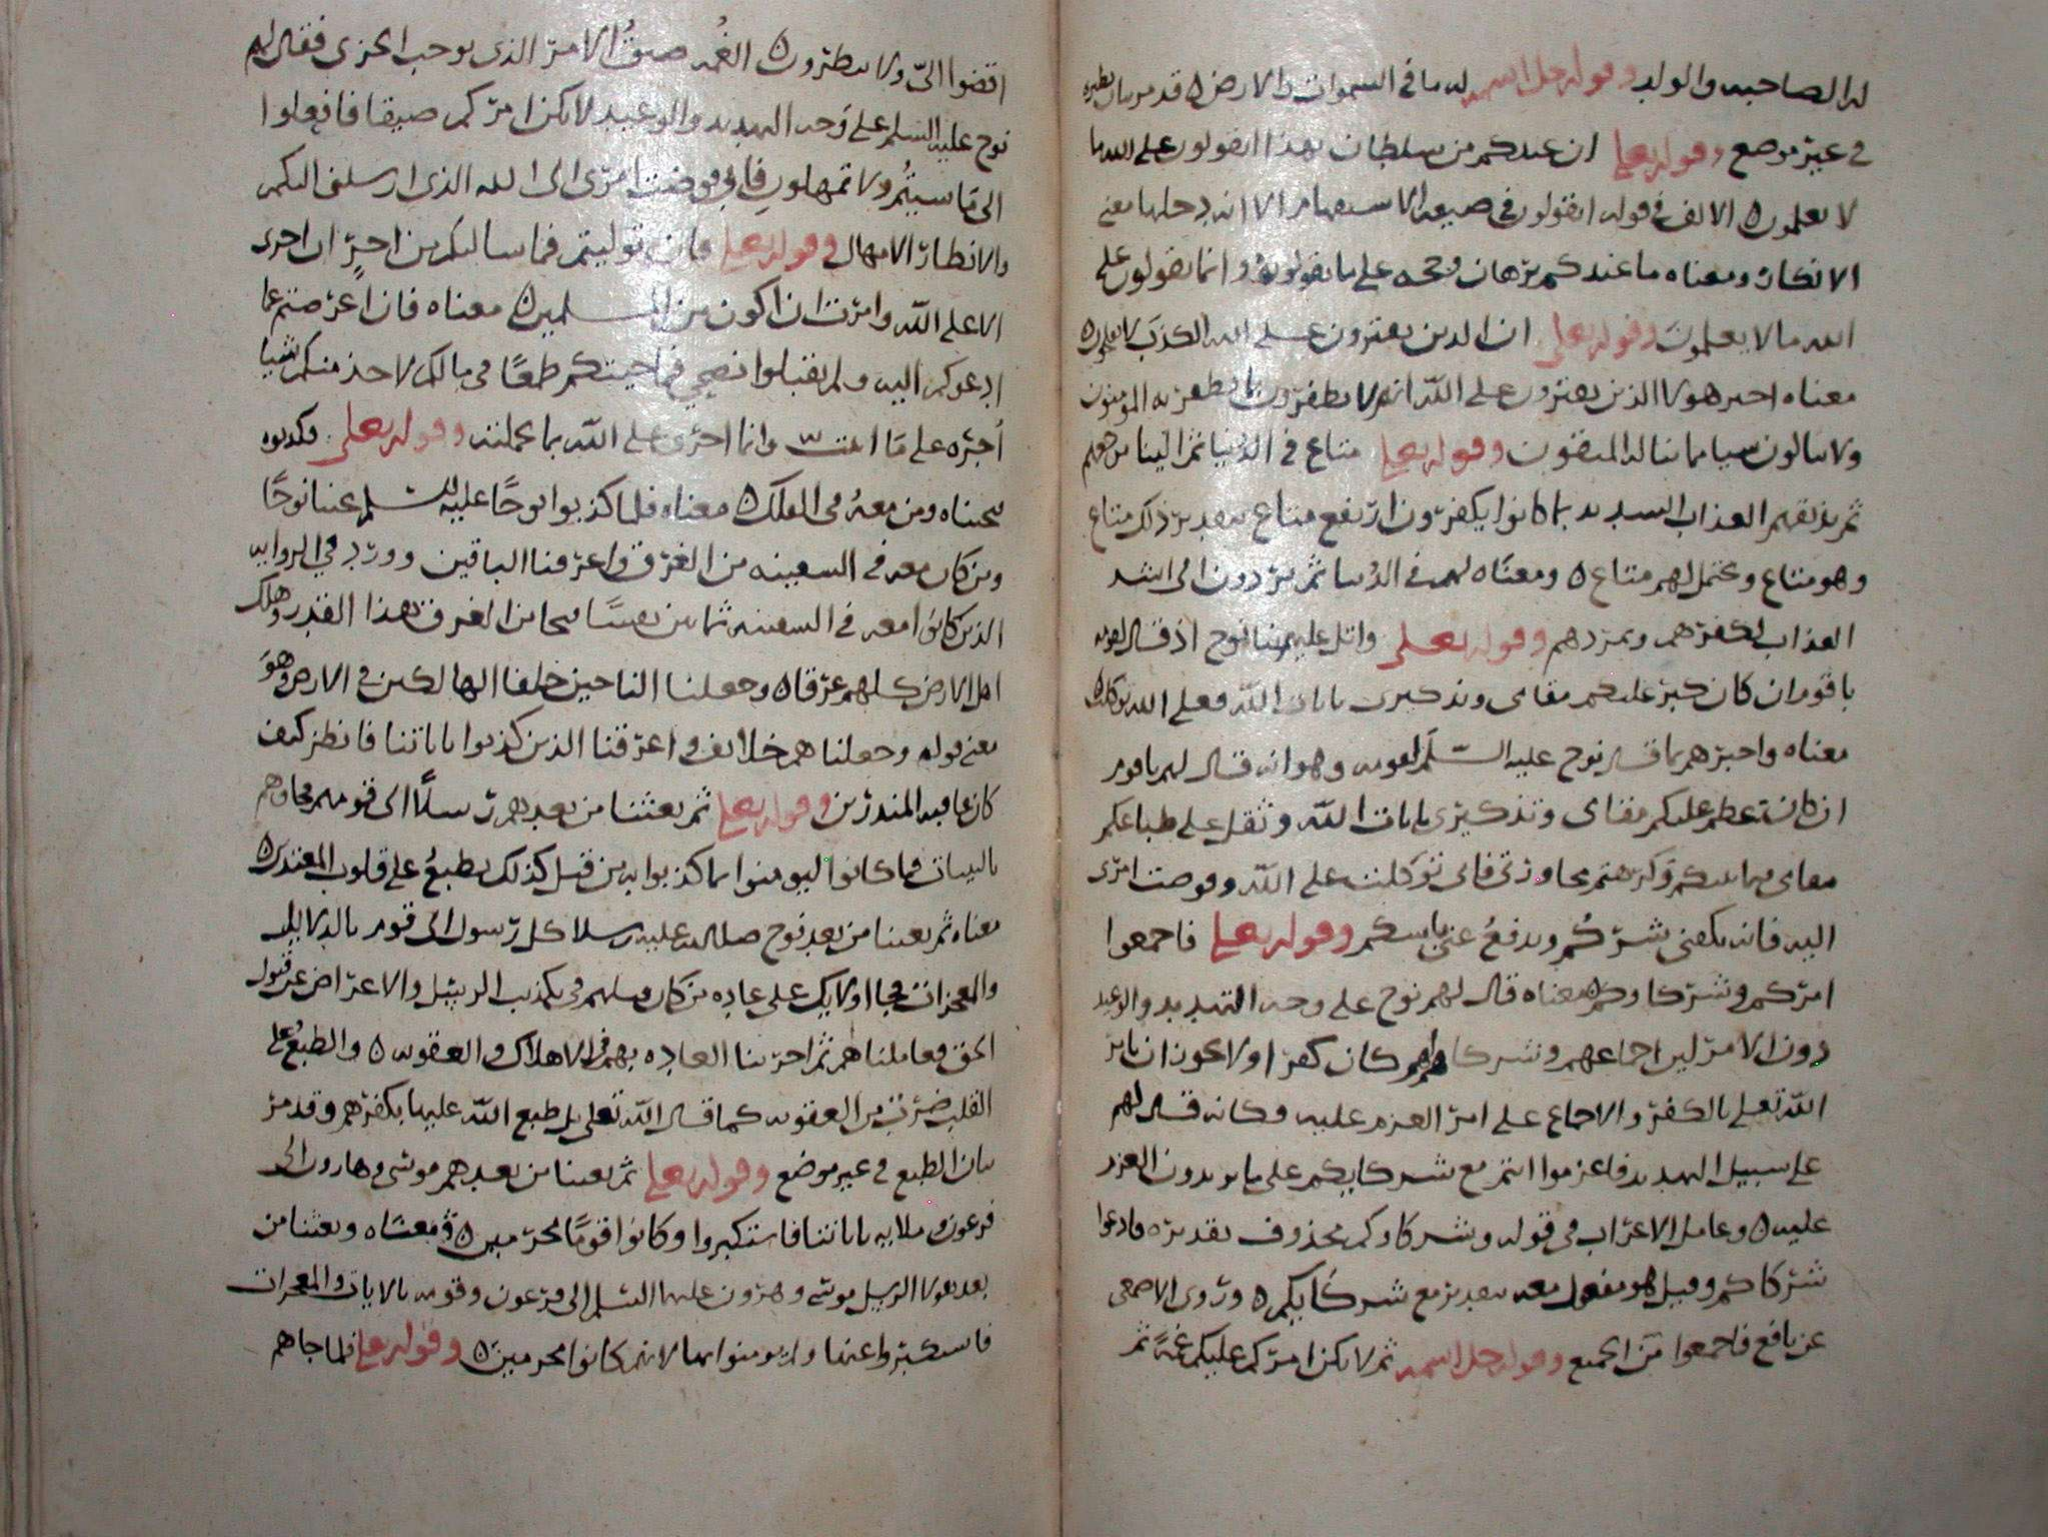 له الصاحبه والولد وقوله جل اسمه له ما في السموات والارض ه قد مر بيان نظيره
في غير موضع وقوله تعلى ان عندكم من سلطان بهذا اتقولون على الله ما
لا تعلمون ه الالف في قوله اتقولون في صيغه الاستفهام الا انه دخلها معنى
الانكار ومعناه ما عندكم برهان وحجه على ما تقولونه وانما تقولون على
الله ما لا يعلمون وقوله تعلى ان الذين يفترون على الله الكذب لا يفلحون ه
معناه اخبر هولا الذين يفترون على الله انهم لا يظفرون بما يظفر به المومنون
ولا ينالون شيا مما يناله المتقون وقوله تعلى متاع في الدنيا ثم الينا مرجعهم
ثم نذيقهم العذاب الشديد بما كانوا يكفرون ارتفع متاع بتقدير ذلك متاع
وهو متاع ويحتمل لهم متاع ه ومعناه لهم في الدنيا ثم يردون الى اشد
العذاب لكفرهم وتمردهم وقوله تعلى واتل عليهم نبا نوح اذ قال لقومه
يا قوم ان كان كبر عليكم مقامي وتذكيري بايات الله فعلى الله توكلت ه
معناه واخبرهم بما قال نوح عليه السلم لقومه وهو انه قال لهم يا قوم
ان كان عظم عليكم مقامي وتذكيري بايات الله وثقل على طباعكم
مقامي فيما بينكم وكرهتم مجاورتي فاني توكلت على الله وفوضت امري
اليه فانه يكفني شركم ويدفع عني باسكم وقوله تعلى فاجمعوا
امركم وشركاوكم ه معناه قال لهم نوح على وجه التهديد والوعيد
دون الامر لان اجماعهم وشركاوهم كان كفرا ولا يجوز ان يامر
الله تعلى بالكفر والاجماع على امر العزم عليه وكانه قال لهم
على سبيل التهديد فاعزموا انتم مع شركايكم على ما تريدون العزم
عليه ه وعامل الاعراب في قوله وشركاوكم محذوف تقديره وادعوا
شركاكم وقيل هو مفعول معه بتقدير مع شركايكم ه وروى الاصمعي
عن نافع فاجمعوا من الجمع وقوله جل اسمه ثم لا يكن امركم عليكم غمة ثم
اقضوا الي ولا تنظرون ه الغمه ضيق الامر الذي يوجب الحزن فقال لهم
نوح عليه السلم على وجه التهديد والوعيد لا يكن امركم ضيقا فافعلوا
الي ما شيتم ولا تمهلون فاني فوضت امري الى الله الذي ارسلني اليكم
والانظار الامهال وقوله تعلى فان توليتم فما سالتكم من اجر ان اجري
الا على الله وامرت ان اكون من المسلمين ه معناه فان اعرضتم عما
ادعوكم اليه ولم تقبلوا نصحي فما جيتكم طمعا في مالكم لاخذ منكم شيا
اجره على ما وانما اجري على الله بما عملته وقوله تعلى فكذبوه
فنجيناه ومن معه في الفلك ه معناه فلما كذبوا نوحا عليه السلم نجينا نوحا
ومن كان معه في السفينه من الغرق واغرقنا الباقين وورد في الروايه
الذين كانوا معه في السفينه ثمانين نفسا نجا من الغرق بهذا القدر وهلك
اهل الارض كلهم غرقا ه وجعلنا الناجين خلفا الهالكين في الارض وهو
معنى قوله وجعلناهم خلايف واغرقنا الذين كذبوا باياتنا فانظر كيف
كان عاقبه المنذرين وقوله تعلى ثم بعثنا من بعدهم رسلا الى قومهم فجاوهم
بالبينات فما كانوا ليومنوا بما كذبوا به من قبل كذلك نطبع على قلوب المعتدين ه
معناه ثم بعثنا من بعد نوح صلى الله عليه رسلا كل رسول الى قوم بالدلايل
والمعجزات فجا اوليك على عاده من كان قبلهم في تكذيب الرسل والاعراض عن قبول
الحق فعاملناهم ثم اجرينا العاده بهم في الاهلاك والعقوبه ه والطبع على
القلب ضرب من العقوبه كما قال الله تعلى بل طبع الله عليها بكفرهم وقد مر
بيان الطبع في غير موضع وقوله تعلى ثم بعثنا من بعدهم موسى وهارون الى
فرعون وملايه باياتنا فاستكبروا وكانوا قوما مجرمين ه ومعناه وبعثنا من
بعد هولا الرسل موسى وهرون عليهما السلم الى فرعون وقومه بالايات والمعجزات
فاستكبروا عنها ولم يومنوا بها لانهم كانوا مجرمين ه وقوله تعلى فلما جاهم